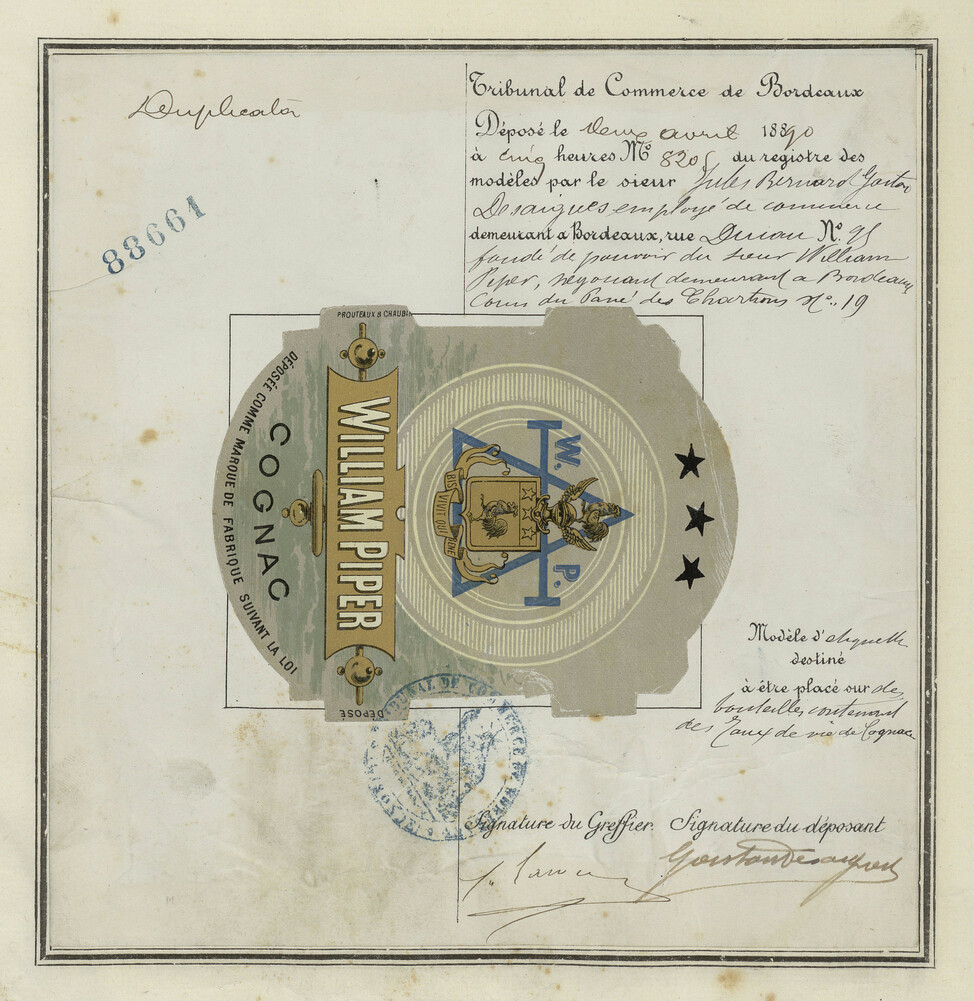 Duplicata
88661
Tribunal de Commerce de Bordeaux
Déposé le deux avril 1890
à cinq heures No 8205 du registre des
modèles par le sieur Jules Bernard Gaston
Desaigues employé de commerce
demeurant à Bordeaux, rue No 95
fondé de pouvoir du sieur William
Piper, négociant demeurant à Bordeaux
Cours du Pavé des Chartrons No. 19
PROUTEAUX & CHAUDIN
DÉPOSÉE COMME MARQUE DE FABRIQUE SUIVANT LA LOI
COGNAC
WILLIAM PIPER
W. P.
BIS VIVIT QUI BENE
DÉPOSÉ
Modèle d'étiquette
destiné
à être placé sur des
bouteilles contenant
des Eaux de vie de Cognac
TRIBUNAL DE COMMERCE
Signature du Greffier. Signature du déposant